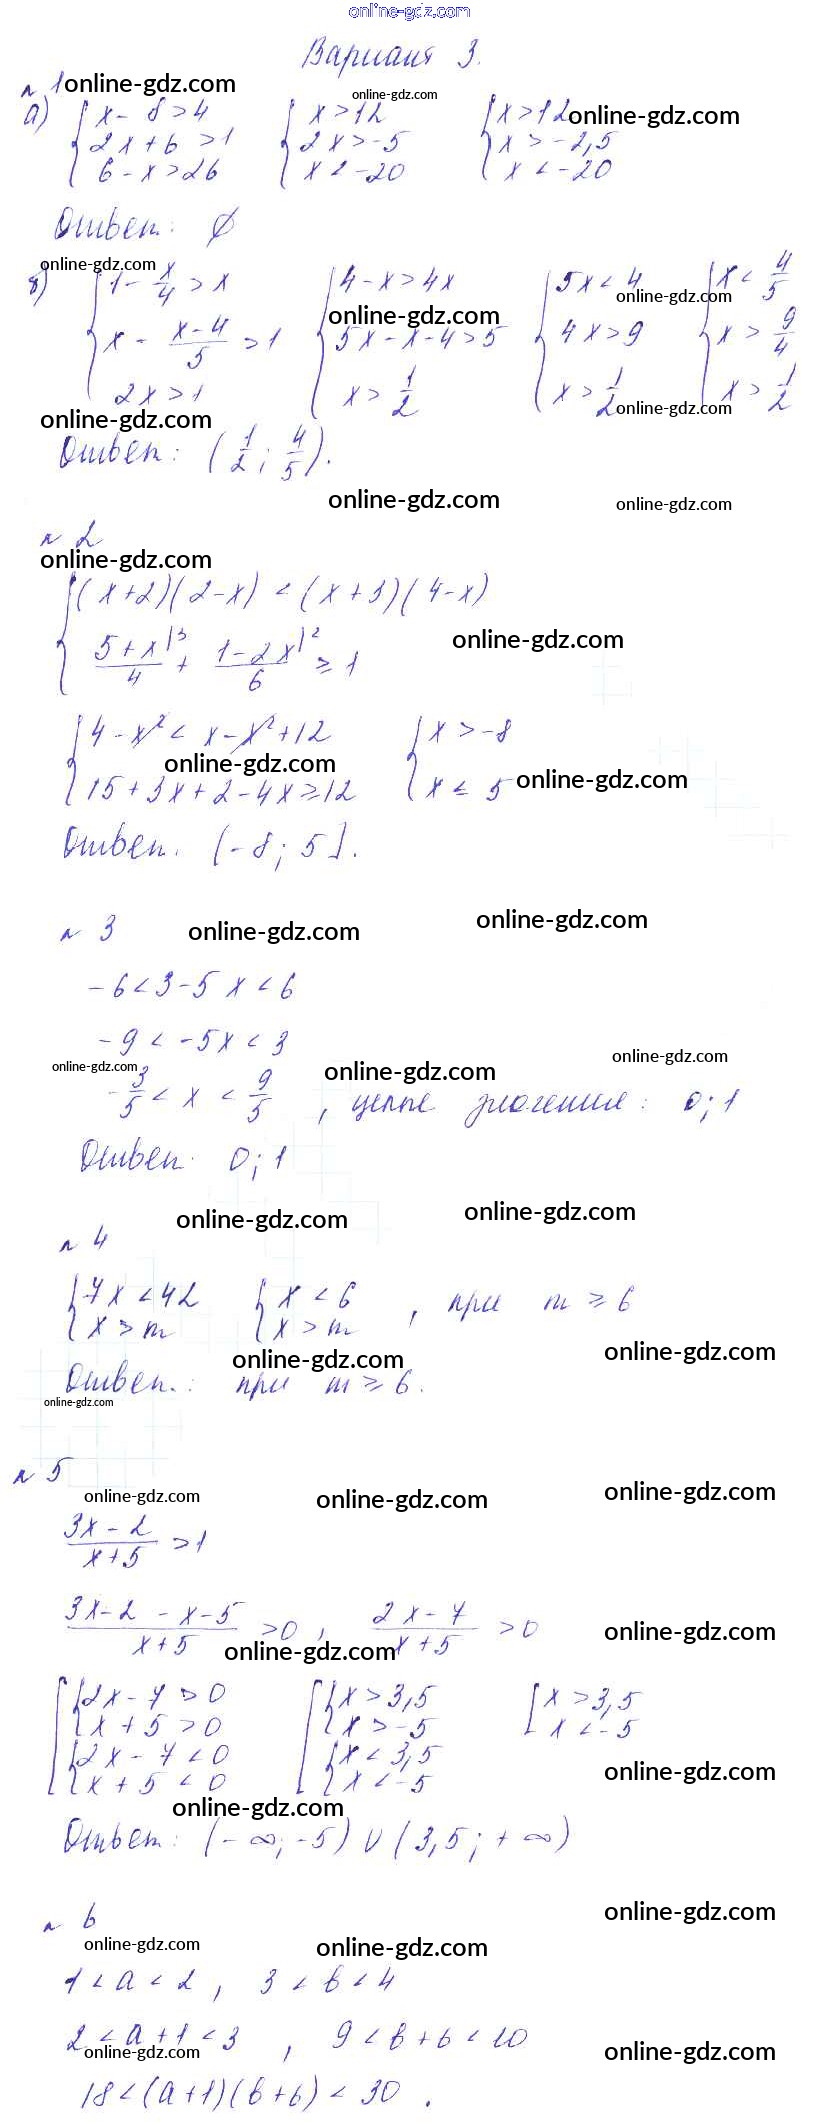 online-gdz.com
Вариант 3.
№ 1 online-gdz.com online-gdz.com
а) { x - 8 > 4 { x > 12 { x > 12 online-gdz.com
2x + 6 > 1 2x > -5 x > -2,5
6 - x > 26 x < -20 x < -20
Ответ: ∅
online-gdz.com
б) { 1 - x/4 > x { 4 - x > 4x { 5x < 4 { x < 4/5
online-gdz.com online-gdz.com
x - (x-4)/5 > 1 5x - x - 4 > 5 4x > 9 x > 9/4
2x > 1 x > 1/2 x > 1/2 x > 1/2
online-gdz.com online-gdz.com
Ответ: (1/2; 4/5).
online-gdz.com online-gdz.com
№ 2
online-gdz.com
{ (x+2)(2-x) < (x+3)(4-x)
online-gdz.com
(5+x)/4 |3 + (1-2x)/6 |2 ≥ 1
{ 4 - x² < x - x² + 12 { x > -8
online-gdz.com online-gdz.com
15 + 3x + 2 - 4x ≥ 12 x ≤ 5
Ответ: (-8; 5].
№ 3 online-gdz.com online-gdz.com
-6 < 3 - 5x < 6
-9 < -5x < 3
online-gdz.com online-gdz.com online-gdz.com
-3/5 < x < 9/5 , целые значения: 0; 1
Ответ: 0; 1
online-gdz.com online-gdz.com
№ 4
{ 7x < 42 { x < 6 , при m ≥ 6
x > m x > m
online-gdz.com online-gdz.com
Ответ.: при m ≥ 6.
online-gdz.com
№ 5
online-gdz.com online-gdz.com online-gdz.com
(3x - 2)/(x + 5) > 1
(3x - 2 - x - 5)/(x + 5) > 0 , (2x - 7)/(x + 5) > 0 online-gdz.com
online-gdz.com
[ { 2x - 7 > 0 [ { x > 3,5 [ x > 3,5
x + 5 > 0 x > -5 x < -5
{ 2x - 7 < 0 { x < 3,5
x + 5 < 0 x < -5 online-gdz.com
online-gdz.com
Ответ: (-∞; -5) ∪ (3,5; +∞)
№ 6 online-gdz.com
online-gdz.com online-gdz.com
1 < a < 2 , 3 < b < 4
2 < a + 1 < 3 , 9 < b + 6 < 10
online-gdz.com online-gdz.com
18 < (a+1)(b+6) < 30 .